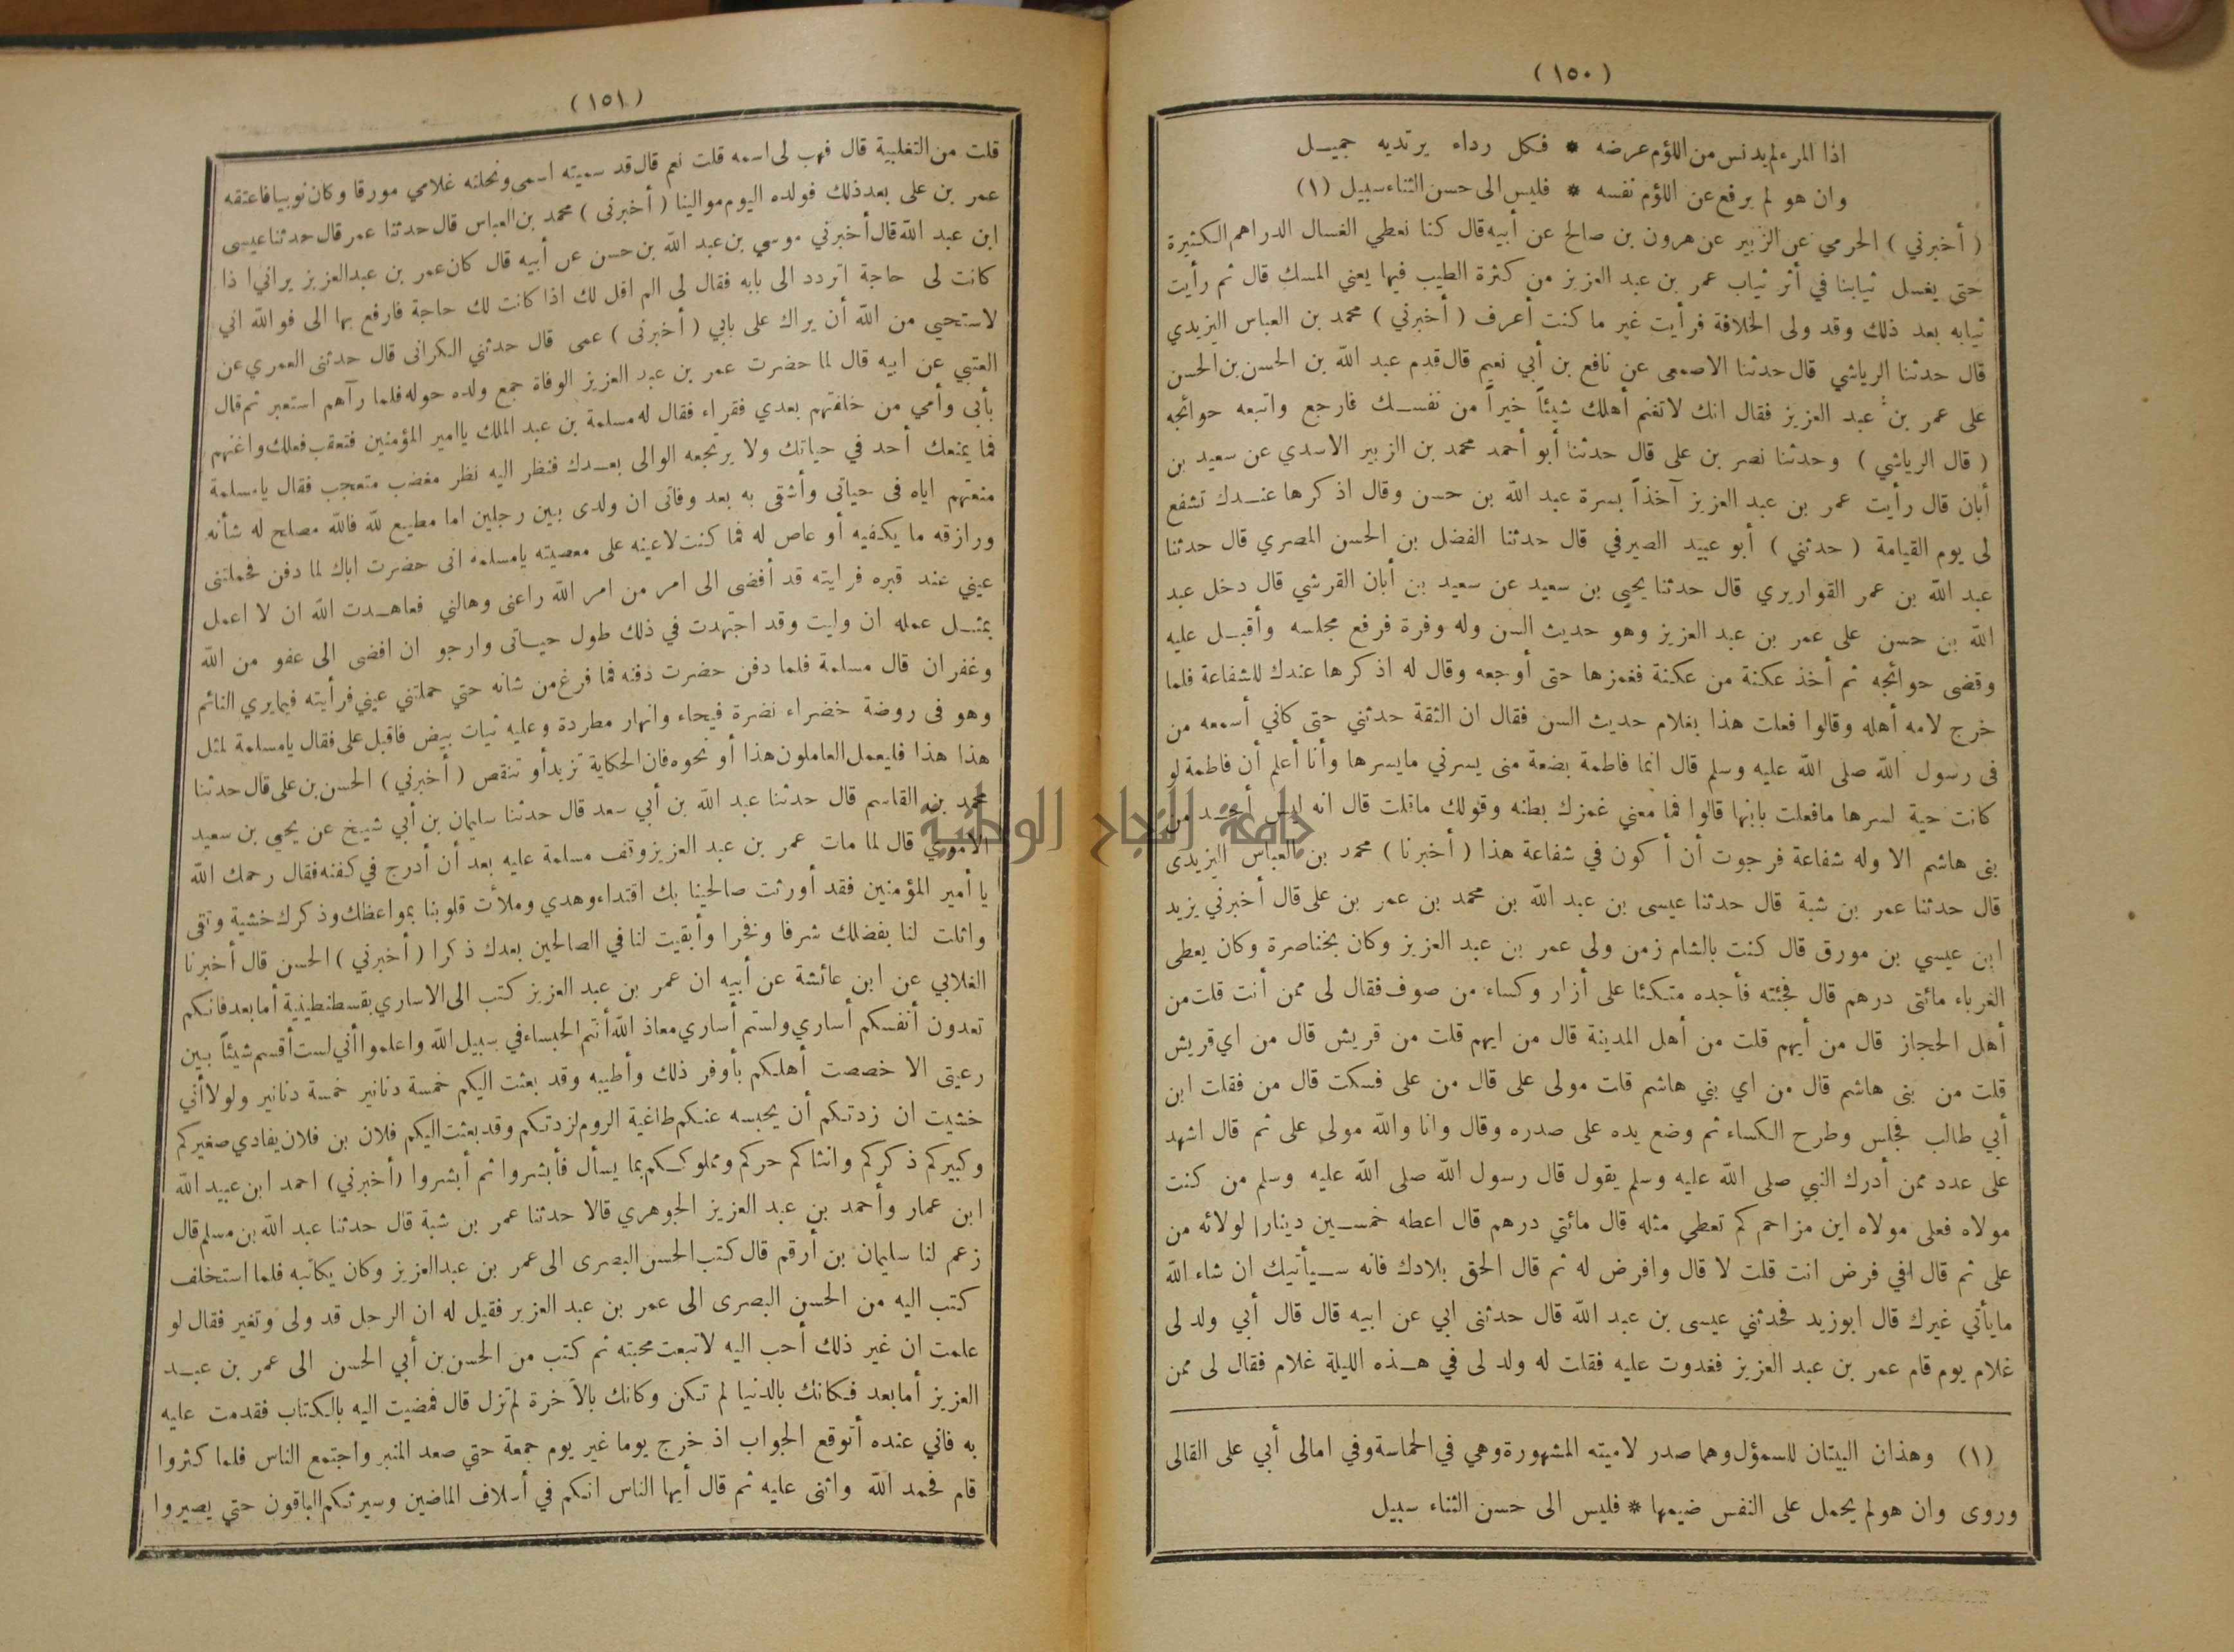 (١٥٠)
اذا المرء لم يدنس من اللؤم عرضه * فكل رداء يرتديه جميـل
وان هو لم يرفع عن اللؤم نفسه * فليس الى حسن الثناء سبيل (١)
( أخبرني ) الحرمي عن الزبير عن هرون بن صالح عن أبيه قال كنا نعطي الغسال الدراهم الكثيرة
حتى يغسل ثيابنا في أثر ثياب عمر بن عبد العزيز من كثرة الطيب فيها يعني المسك قال ثم رأيت
ثيابه بعد ذلك وقد ولى الخلافة فرأيت غير ما كنت أعرف ( أخبرني ) محمد بن العباس اليزيدي
قال حدثنا الرياشي قال حدثنا الاصمعى عن نافع بن أبي نعيم قال قدم عبد الله بن الحسن بن الحسن
على عمر بن عبد العزيز فقال انك لاتغنم أهلك شيئاً خيراً من نفسـك فارجع واتبعه حوائجه
( قال الرياشي ) وحدثنا نصر بن على قال حدثنا أبو أحمد محمد بن الزبير الاسدي عن سعيد بن
أبان قال رأيت عمر بن عبد العزيز آخذاً بسرة عبد الله بن حسن وقال اذكرها عنـدك تشفع
لى يوم القيامة ( حدثني ) أبو عبيد الصيرفي قال حدثنا الفضل بن الحسن المصري قال حدثنا
عبد الله بن عمر القواريري قال حدثنا يحيى بن سعيد عن سعيد بن أبان القرشي قال دخل عبد
الله بن حسن على عمر بن عبد العزيز وهو حديث السن وله وفرة فرفع مجلسه وأقبـل عليه
وقضى حوائجه ثم أخذ عكنة من عكنة فغمزها حتى أوجعه وقال له اذكرها عندك للشفاعة فلما
خرج لامه أهله وقالوا فعلت هذا بغلام حديث السن فقال ان الثقة حدثني حتى كاني أسمعه من
فى رسول الله صلى الله عليه وسلم قال انما فاطمة بضعة منى يسرني مايسرها وأنا أعلم أن فاطمة لو
كانت حية لسرها مافعلت بابنها قالوا فما معني غمزك بطنه وقولك ماقلت قال انه ليس أحـد من
بنى هاشم الا وله شفاعة فرجوت أن أكون في شفاعة هذا ( أخبرنا ) محمد بن العباس اليزيدى
قال حدثنا عمر بن شبة قال حدثنا عيسى بن عبد الله بن محمد بن عمر بن على قال أخبرني يزيد
ابن عيسي بن مورق قال كنت بالشام زمن ولى عمر بن عبد العزيز وكان بخناصرة وكان يعطى
الغرباء مائتى درهم قال فجئته فأجده متكئا على أزار وكساء من صوف فقال لى ممن أنت قلت من
أهل الحجاز قال من أيهم قلت من أهل المدينة قال من ايهم قلت من قريش قال من اي قريش
قلت من بنى هاشم قال من اي بني هاشم قلت مولى على قال من على فسكت قال من فقلت ابن
أبي طالب فجلس وطرح الكساء ثم وضع يده على صدره وقال وانا والله مولي على ثم قال اشهد
على عدد ممن أدرك النبي صلى الله عليه وسلم يقول قال رسول الله صلى الله عليه وسلم من كنت
مولاه فعلى مولاه اين مزاحم كم تعطي مثله قال مائتي درهم قال اعطه خمسـين دينارا لولائه من
على ثم قال افي فرض انت قلت لا قال وافرض له ثم قال الحق بلادك فانه سـيأتيك ان شاء الله
مايأتي غيرك قال ابوزيد فحدثني عيسى بن عبد الله قال حدثنى ابي عن ابيه قال قال أبي ولد لى
غلام يوم قام عمر بن عبد العزيز فغدوت عليه فقلت له ولد لى في هـذه الليلة غلام فقال لى ممن
(١) وهذان البيتان للسمؤل وهما صدر لاميته المشهورة وهي في الحماسة وفي امالى أبي على القالى
وروى وان هو لم يحمل على النفس ضيمها * فليس الى حسن الثناء سبيل
(١٥١)
قلت من التغلبية قال فهب لى اسمه قلت نعم قال قد سميته اسمى ونحلته غلامي مورقا وكان نوبيا فاعتقه
عمر بن على بعد ذلك فولده اليوم موالينا ( أخبرنى ) محمد بن العباس قال حدثنا عمر قال حدثنا عيسى
ابن عبد الله قال أخبرني موسي بن عبد الله بن حسن عن أبيه قال كان عمر بن عبدالعزيز يراني اذا
كانت لى حاجة اتردد الى بابه فقال لى الم اقل لك اذا كانت لك حاجة فارفع بها الى فوالله اني
لاستحيي من الله أن يراك على بابي ( أخبرنى ) عمى قال حدثني الكرانى قال حدثنى العمري عن
العتبي عن ابيه قال لما حضرت عمر بن عبد العزيز الوفاة جمع ولده حوله فلما رآهم استعبر ثم قال
بأبى وأمي من خلفتهم بعدي فقراء فقال له مسلمة بن عبد الملك ياامير المؤمنين فتعقب فعلك واغنهم
فما يمنعك أحد في حياتك ولا يرتجعه الوالى بعـدك فنظر اليه نظر مغضب متعجب فقال يامسلمة
منعتهم اياه فى حياتى وأشقى به بعد وفاتى ان ولدى بين رجلين اما مطيع لله فالله مصلح له شأنه
ورازقه مايكفيه أو عاص له فما كنت لاعينه على معصيته يامسلمة انى حضرت اباك لما دفن فحملتنى
عيني عند قبره فرايته قد أفضى الى امر من امر الله راعنى وهالني فعاهـدت الله ان لا اعمل
بمثـل عمله ان وليت وقد اجتهدت في ذلك طول حيـاتى وارجو ان افضى الى عفو من الله
وغفران قال مسلمة فلما دفن حضرت دفنه فما فرغ من شانه حتي حملتني عيني فرأيته فيمايري النائم
وهو فى روضة خضراء نضرة فيحاء وانهار مطردة وعليه ثيات بيض فاقبل على فقال يامسلمة لمثل
هذا هذا فليعمل العاملون هذا أو نحوه فان الحكاية تزيد أو تنقص ( أخبرني ) الحسن بن على قال حدثنا
محمد بن القاسم قال حدثنا عبد الله بن أبي سعد قال حدثنا سليمان بن أبي شيخ عن يحيى بن سعيد
الاموي قال لما مات عمر بن عبد العزيز وقف مسلمة عليه بعد أن أدرج في كفنه فقال رحمك الله
يا أمير المؤمنين فقد أورثت صالحينا بك اقتداء وهدي وملأت قلوبنا بمواعظك وذكرك خشية وتقى
واثلت لنا بفضلك شرفا وفخرا وأبقيت لنا في الصالحين بعدك ذكرا ( أخبرني ) الحسن قال أخبرنا
الغلابي عن ابن عائشة عن أبيه ان عمر بن عبد العزيز كتب الى الاساري بقسطنطينية أما بعد فانكم
تعدون أنفسكم أساري ولستم أساري معاذ الله أنتم الحبساء في سبيل الله واعلموا أني لست أقسم شيئاً بين
رعيتى الا خصصت أهلكم بأوفر ذلك وأطيبه وقد بعثت اليكم خمسة دنانير خمسة دنانير ولولا أني
خشيت ان زدتكم أن يحبسه عنكم طاغية الروم لزدتكم وقد بعثت اليكم فلان بن فلان يفادي صغيركم
وكبيركم ذكركم وانثاكم حركم ومملوكـكم بما يسأل فأبشروا ثم أبشروا (أخبرني) احمد ابن عبيد الله
ابن عمار وأحمد بن عبد العزيز الجوهري قالا حدثنا عمر بن شبة قال حدثنا عبد الله بن مسلم قال
زعم لنا سليمان بن أرقم قال كتب الحسن البصرى الى عمر بن عبدالعزيز وكان يكاتبه فلما استخلف
كتب اليه من الحسن البصرى الى عمر بن عبد العزيز فقيل له ان الرجل قد ولى وتغير فقال لو
علمت ان غير ذلك أحب اليه لاتبعت محبته ثم كتب من الحسن بن أبي الحسن الى عمر بن عبـد
العزيز أما بعد فكانك بالدنيا لم تكن وكانك بالآخرة لم تزل قال فمضيت اليه بالكتاب فقدمت عليه
به فاني عنده أتوقع الجواب اذ خرج يوما غير يوم جمعة حتي صعد المنبر واجتمع الناس فلما كثروا
قام فحمد الله واثنى عليه ثم قال أيها الناس انكم في أسلاف الماضين وسيرثكم الباقون حتي يصيروا
جامعة النجاح الوطنية